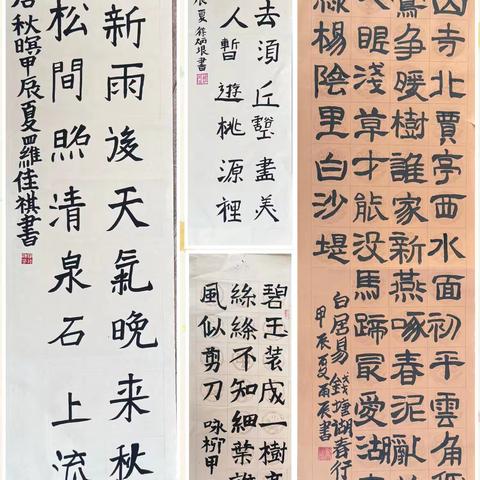 新雨後天氣晚来秋
松間照清泉石上流
居秋暝甲辰夏羅佳祺書
去須丘壑盡美
人暫遊桃源裡
辰夏書
碧玉装成一樹高
絲絛不知細葉誰
風似剪刀 咏柳甲
寺北賈亭西水面初平雲
鶯争暖樹誰家新燕啄春泥亂
眼淺草才能没馬蹄最愛湖
綠楊陰里白沙堤
白居易錢塘湖春行
甲辰夏雨辰書